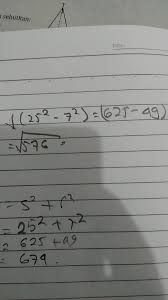 n sebutkan.
√(25² - 7²) = (625 - 49)
= √576 =
= s² + r²
= 25² + r²
= 625 + 49
= 674.